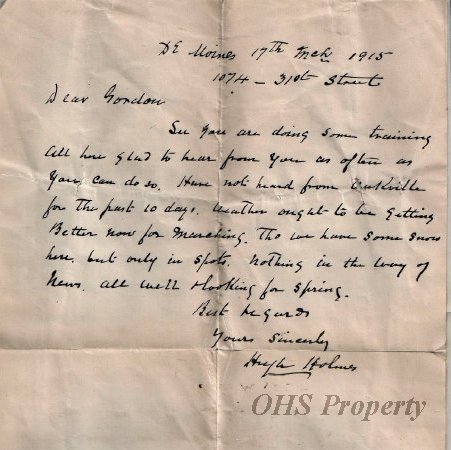 De Moines 17th Mch 1915
1074 - 31st Street
Dear Gordon
See you are doing some training
all here glad to hear from you as often as
you can do so. Have not heard from Oakville
for the past 10 days. Weather ought to be getting
Better now for marching. Tho we have some snow
here, but only in spots. Nothing in the way of
News. all well & looking for spring.
Best regards
Yours Sincerely
Hugh Holmes
OHS Property